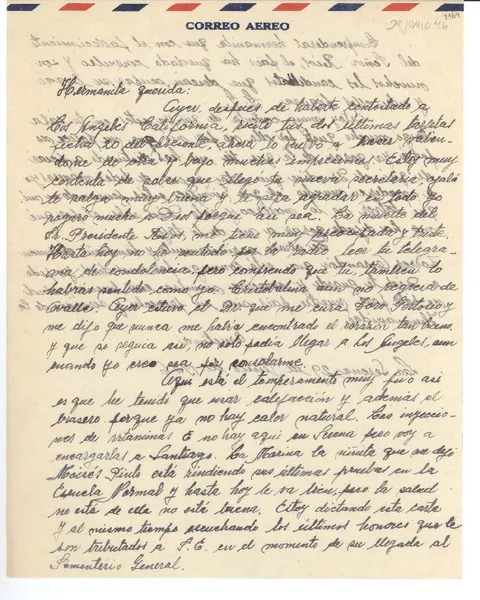 CORREO AEREO
29 JUNIO 46
Hermanita querida:
Ayer, después de haberte contestado a
Los Angeles California, recibí tus dos últimas tarjetas
fecha 20 del presente ahora lo vuelvo a hacer
de otra y bajo muchas impresiones. Estoy muy
contenta de saber que llegó tu nueva secretaria ojalá
te salga muy buena y te sepa agradar en todo yo
rogaré mucho a Dios porque así sea. La muerte del
Sr. Presidente Ríos, me tiene muy y triste.
Hasta hoy no he sentido por la radio leer tu telegra-
ma de condolencia, pero comprendo que tú también lo
habrás sentido como yo. Cristobalina aún no regresa de
Ovalle. Ayer estuvo el Dr que me cura, Jose
me dijo que nunca me había encontrado el corazón tan bueno,
y que si seguía así no solo podía llegar a Los Angeles, aun
cuando yo creo sea por consolarme.
Aquí está el temperamento muy frío así
es que he tenido que usar calefacción y además el
brasero porque ya no hay calor natural. Las inyeccio-
nes de vitaminas E no hay aquí en Serena pero voy a
encargarlas a Santiago. La Marina la niñita que me dejó
Moisés está rindiendo sus últimas pruebas en la
Escuela Normal y hasta hoy le va bien, pero la salud
no está de ella no está buena. Estoy dictando esta carta
y al mismo tiempo escuchando los últimos honores que le
son tributados a S.E. en el momento de su llegada al
Cementerio General.